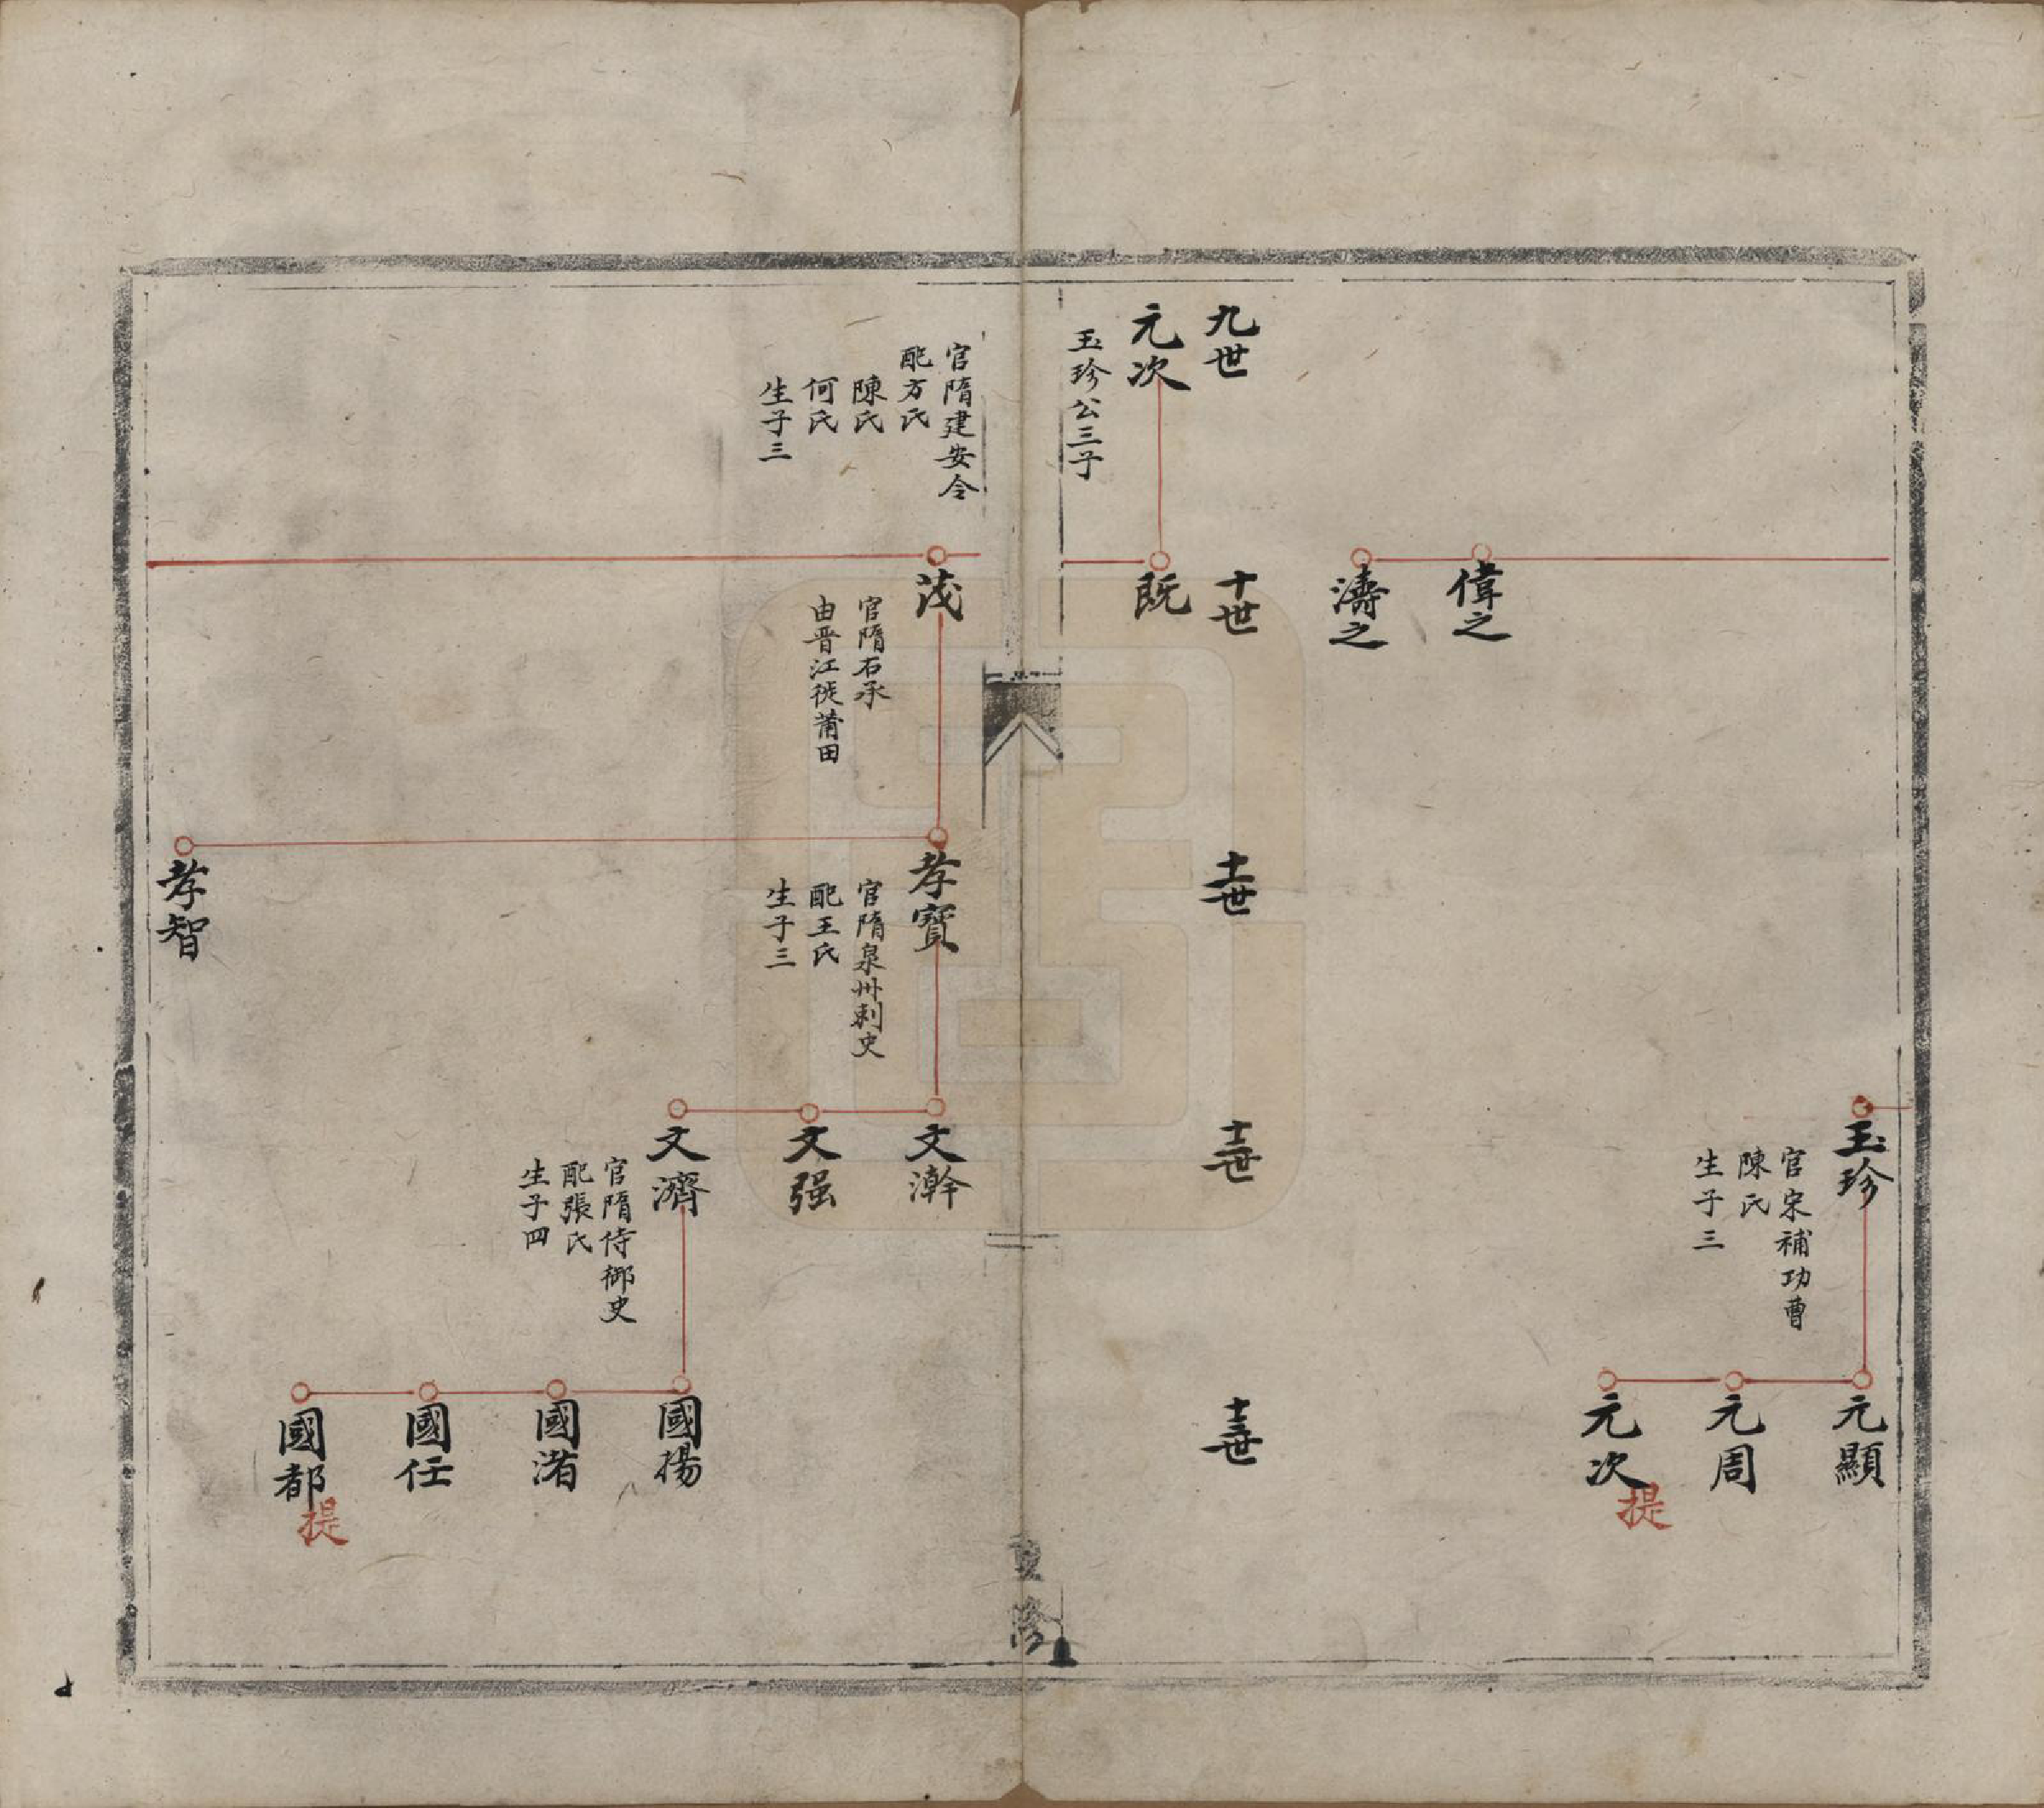 偉之
濤之
玉珍
官宋補功曹
陳氏
生子三
元顯
元周
元次
提
九世
十世
十一世
十二世
十三世
元次
玉珍公三子
既
官隋建安令
配方氏
陳氏
何氏
生子三
茂
官隋右承
由晉江徙莆田
孝寶
官隋泉州刺史
配王氏
生子三
孝智
文澣
文强
文濟
官隋侍御史
配張氏
生子四
國揚
國渚
國任
國都
提